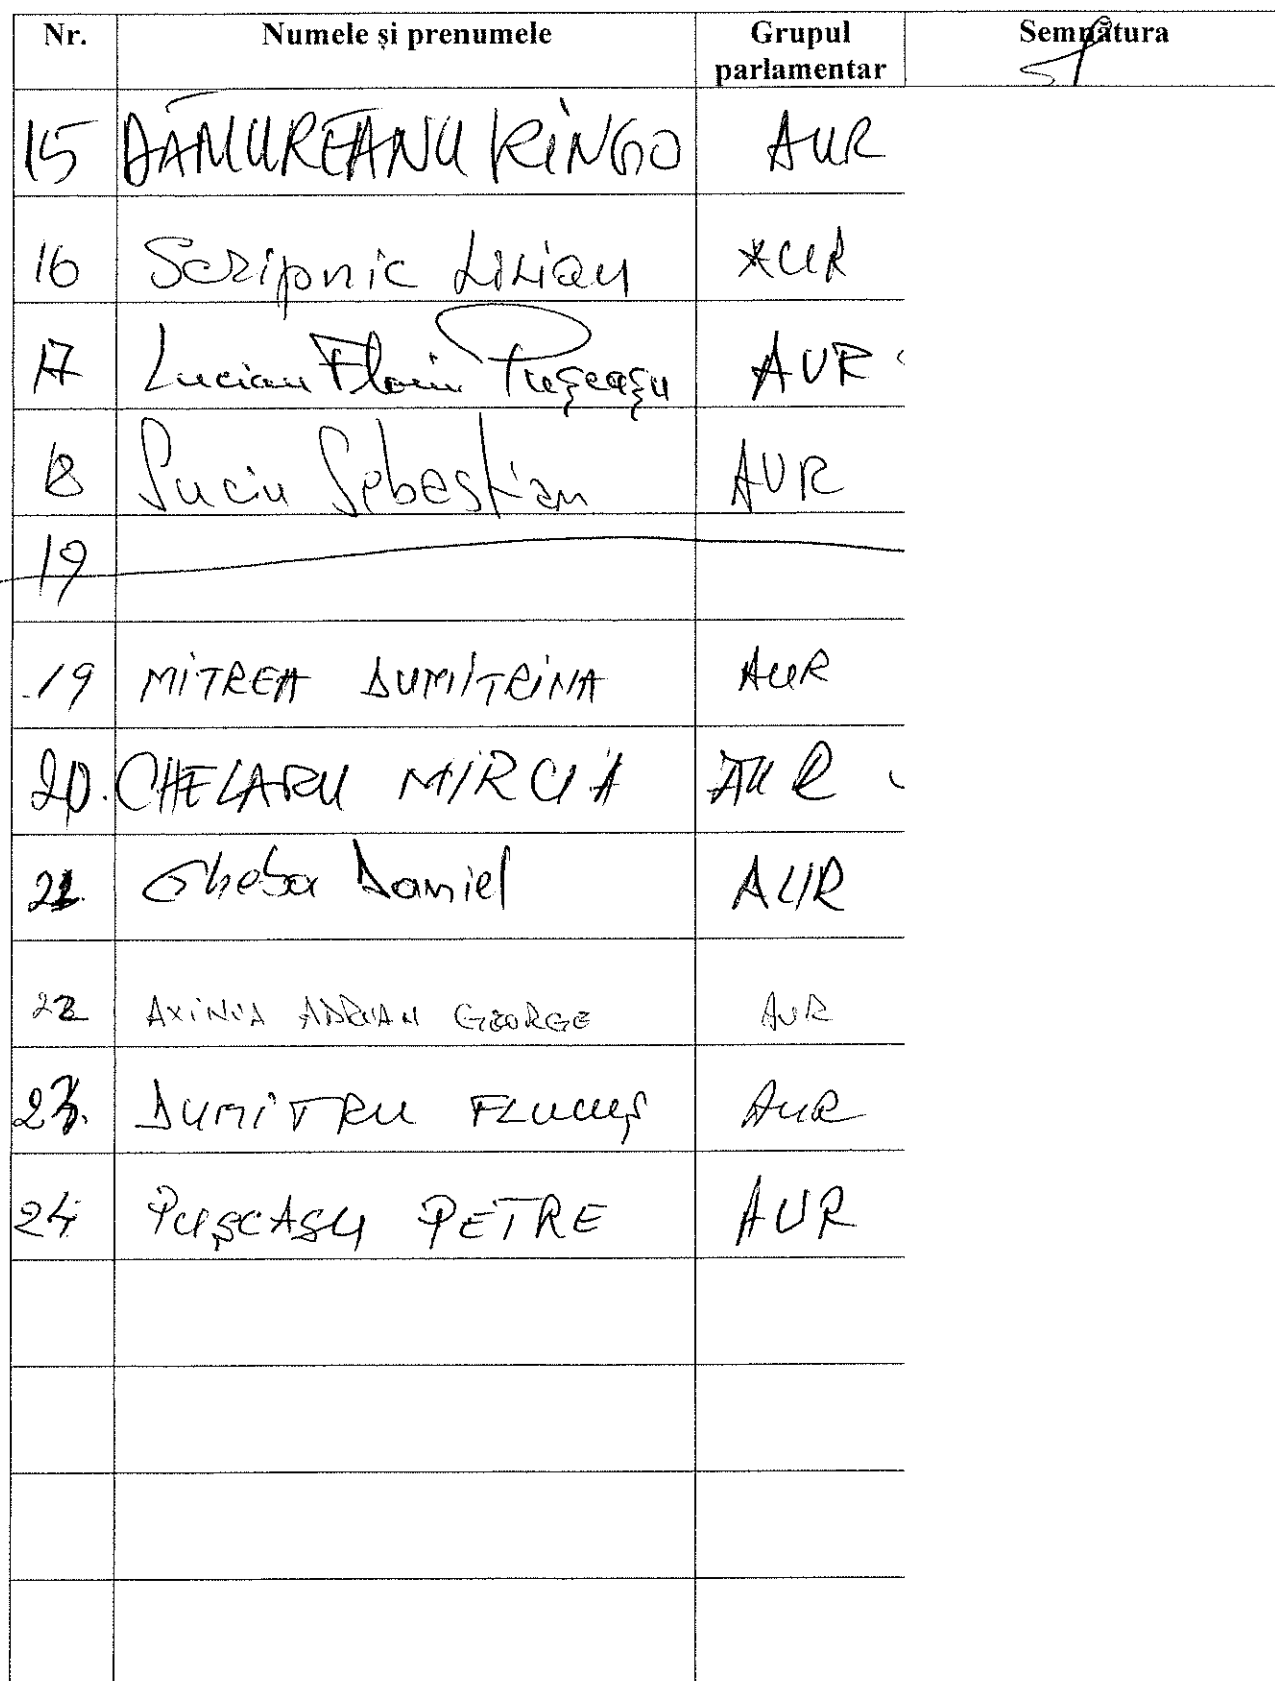 Nr. Numele și prenumele Grupul parlamentar Semnătura
15 DĂMUREANU RINGO AUR
16 Scripnic Lilian AUR
17 Lucian Florin Pușcașu AUR
18 Suciu Sebestian AUR
19
19 MITREA DUMITRINA AUR
20. CHELARU MIRCIA AUR
21. Gheba Daniel AUR
22 AXINIA ADRIAN GEORGE AUR
23. DUMITRU FLUCUȘ AUR
24 PUȘCAȘU PETRE AUR